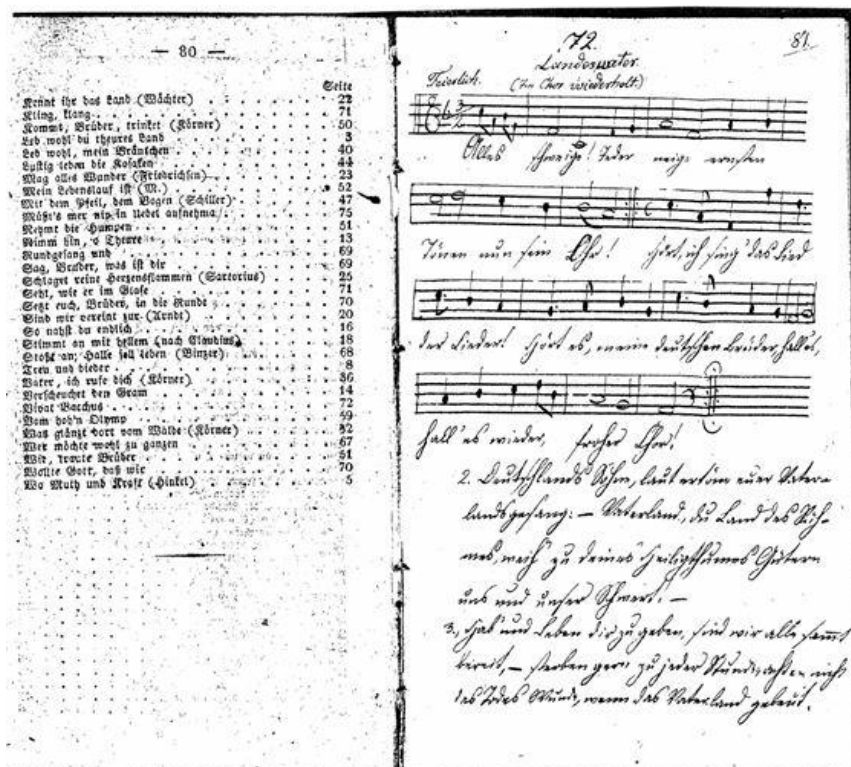 — 80 —
Seite
Kennt ihr das Land (Wächter) 22
Kling, klang 71
Kommt, Brüder, trinket (Körner) 50
Leb wohl du theures Land 3
Leb wohl, mein Bräutchen 40
Lustig leben die Kosaken 44
Mag alles Wunder (Friedrichsen) 23
Mein Lebenslauf ist (M.) 52
Mit dem Pfeil, dem Bogen (Schiller) 47
Müßt's mer nix in Uebel aufnehma 75
Nehmt die Humpen 51
Nimm hin, o Theure 13
Rundgesang und 69
Sag, Bruder, was ist dir 69
Schlaget reine Herzensflammen (Sartorius) 25
Seht, wie er im Glase 71
Setzt euch, Brüder, in die Runde 70
Sind wir vereint zur (Arndt) 20
So nahst du endlich 16
Stimmt an mit hellem (nach Claudius) 18
Stoßt an; Halle soll leben (Binzer) 68
Treu und bieder 8
Vater, ich rufe dich (Körner) 36
Verscheuchet den Gram 14
Vivat Bacchus 72
Vom hoh'n Olymp 59
Was glänzt dort vom Walde (Körner) 32
Wer möchte wohl zu ganzen 67
Wir, traute Brüder 51
Wollte Gott, daß wir 70
Wo Muth und Kraft (Hinkel) 5
72. 81.
Landesvater.
Feierlich. (Im Chor wiederholt.)
Alles schweige! Jeder neige ernsten
Tönen nun sein Ohr! Hört, ich sing' das Lied
der Lieder! Hört es, meine deutschen Brüder, hall' es,
hall' es wieder, froher Chor!
2. Deutschlands Söhne, laut ertöne euer Vater-
landsgesang: — Vaterland, du Land des Ruh-
mes, weih' zu deines Heiligthumes Hütern
uns und unser Schwert. —
3., Hab' und Leben dir zu geben, sind wir alle sammt
bereit, — sterben gern zu jeder Stunde, achten nicht
des Todes Wunde, wenn das Vaterland gebeut.